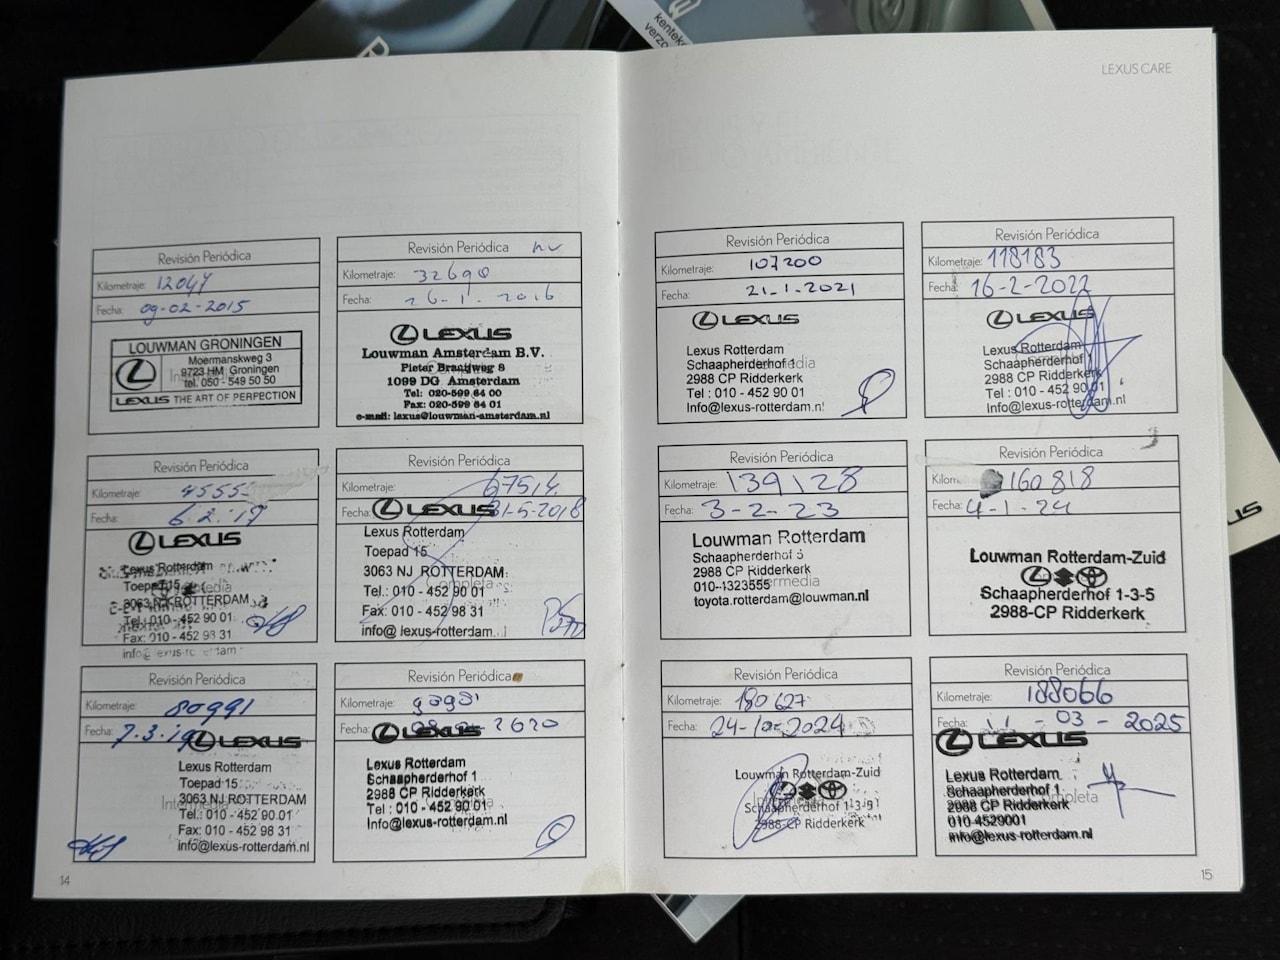 kenteke
verzo
LEXUS CARE
Revisión Periódica
Kilometraje: 12047
Fecha: 09-02-2015
LOUWMAN GRONINGEN
Moermanskweg 3
9723 HM Groningen
tel. 050 - 549 50 50
LEXUS THE ART OF PERFECTION
Revisión Periódica
Kilometraje: 32690
Fecha: 26-1-2016
LEXUS
Louwman Amsterdam B.V.
Pieter Braaijweg 8
1099 DG Amsterdam
Tel: 020-599 64 00
Fax: 020-599 64 01
e-mail: lexus@louwman-amsterdam.nl
Revisión Periódica
Kilometraje: 4555
Fecha: 6.2.'17
LEXUS
Lexus Rotterdam
Toepad 15
3063 NJ ROTTERDAM
Tel.: 010 - 452 90 01
Fax: 010 - 452 98 31
info@lexus-rotterdam
Revisión Periódica
Kilometraje: 67514
Fecha: 31-5-2018
LEXUS
Lexus Rotterdam
Toepad 15
3063 NJ ROTTERDAM
Completa
Tel.: 010 - 452 90 01
Fax: 010 - 452 98 31
info@lexus-rotterdam.
Revisión Periódica
Kilometraje: 80991
Fecha: 7.3.19
LEXUS
Lexus Rotterdam
Toepad 15
3063 NJ ROTTERDAM
Tel.: 010 - 452 90 01
Fax: 010 - 452 98 31
info@lexus-rotterdam.nl
Revisión Periódica
Kilometraje:
Fecha: 2020
LEXUS
Lexus Rotterdam
Schaapherderhof 1
2988 CP Ridderkerk
Tel : 010 - 452 90 01
Info@lexus-rotterdam.nl
14
Revisión Periódica
Kilometraje: 107200
Fecha: 21-1-2021
LEXUS
Lexus Rotterdam
Schaapherderhof 1
2988 CP Ridderkerk
Tel : 010 - 452 90 01
Info@lexus-rotterdam.nl
Revisión Periódica
Kilometraje: 118183
Fecha: 16-2-2022
LEXUS
Lexus Rotterdam
Schaapherderhof 1
2988 CP Ridderkerk
Tel : 010 - 452 90 01
Info@lexus-rotterdam.nl
Revisión Periódica
Kilometraje: 139128
Fecha: 3-2-23
Louwman Rotterdam
Schaapherderhof 3
2988 CP Ridderkerk
010-4323555
toyota.rotterdam@louwman.nl
Revisión Periódica
Kilom 160818
Fecha: 4-1-24
Louwman Rotterdam-Zuid
Schaapherderhof 1-3-5
2988-CP Ridderkerk
Revisión Periódica
Kilometraje: 180627
Fecha: 24-10-2024
Louwman Rotterdam-Zuid
Schaapherderhof 1-3-5
2988-CP Ridderkerk
Revisión Periódica
Kilometraje: 188066
Fecha: 11-03-2025
LEXUS
Lexus Rotterdam
Schaapherderhof 1
2988 CP Ridderkerk
Completa
010-4529001
info@lexus-rotterdam.nl
15